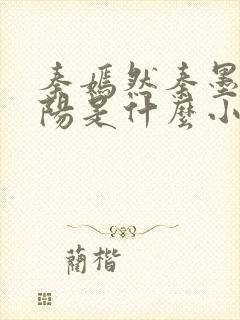 秦嫣然秦墨
陽是什麼小
藺楷